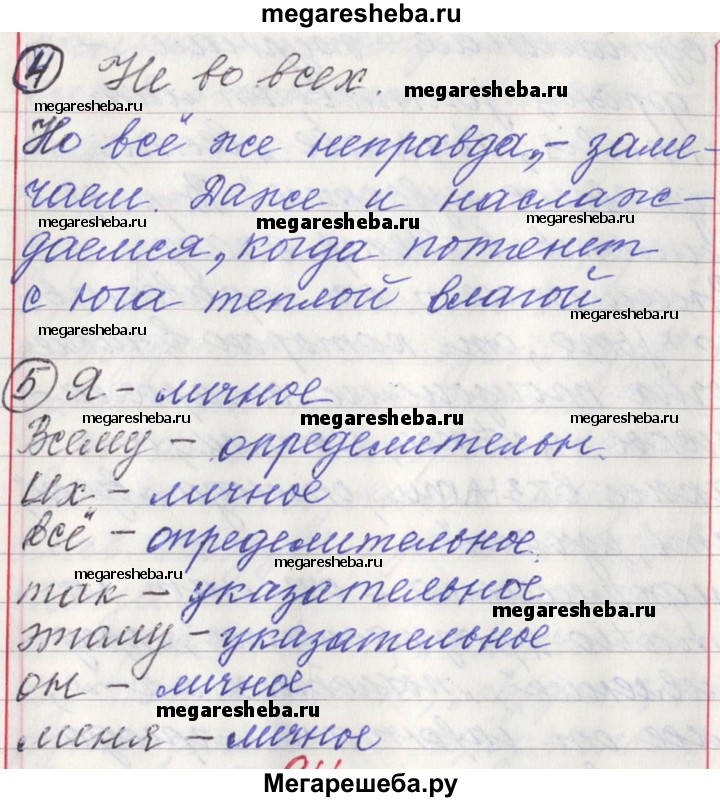 megaresheba.ru
④ Не во всех.
megaresheba.ru
megaresheba.ru
Но всё же неправда, – заме-
чаем. Даже и наслаж-
megaresheba.ru
megaresheba.ru
megaresheba.ru
даемся, когда потянет
с юга теплой влагой
megaresheba.ru
megaresheba.ru
⑤ Я – личное
megaresheba.ru
megaresheba.ru
megaresheba.ru
Всему – определительн.
Их – личное
Всё – определительное
megaresheba.ru
megaresheba.ru
так – указательное
megaresheba.ru
этому – указательное
он – личное
megaresheba.ru
меня – личное
megaresheba.ru
Мегарешеба.ру